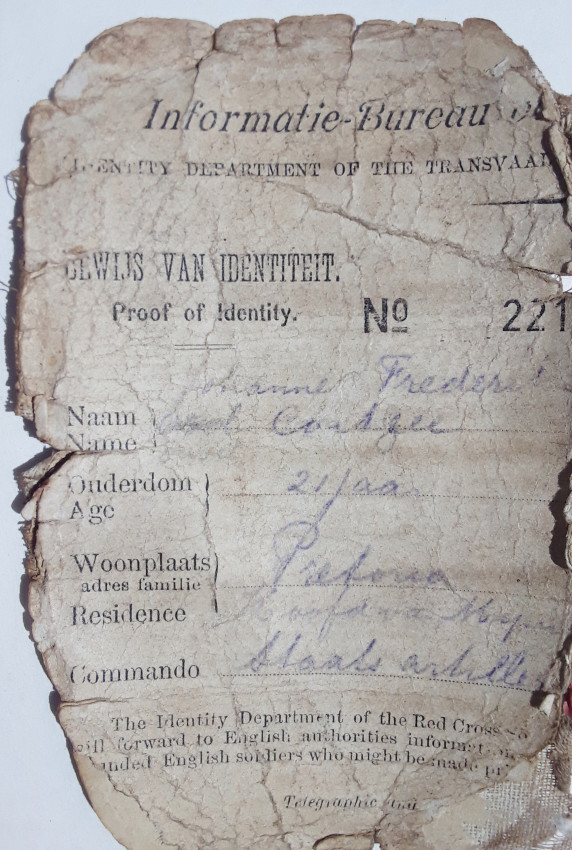 Informatie-Bureau
IDENTITY DEPARTMENT OF THE TRANSVAAL
BEWIJS VAN IDENTITEIT.
Proof of Identity.
No 221
Johannes Frederik
Naam
Coetzee
Name
Ouderdom
21 jaar
Age
Woonplaats
Pretoria
adres familie
Residence
Commando Staats artillerie
The Identity Department of the Red Cross
will forward to English authorities
English soldiers who might be made
Telegraphic